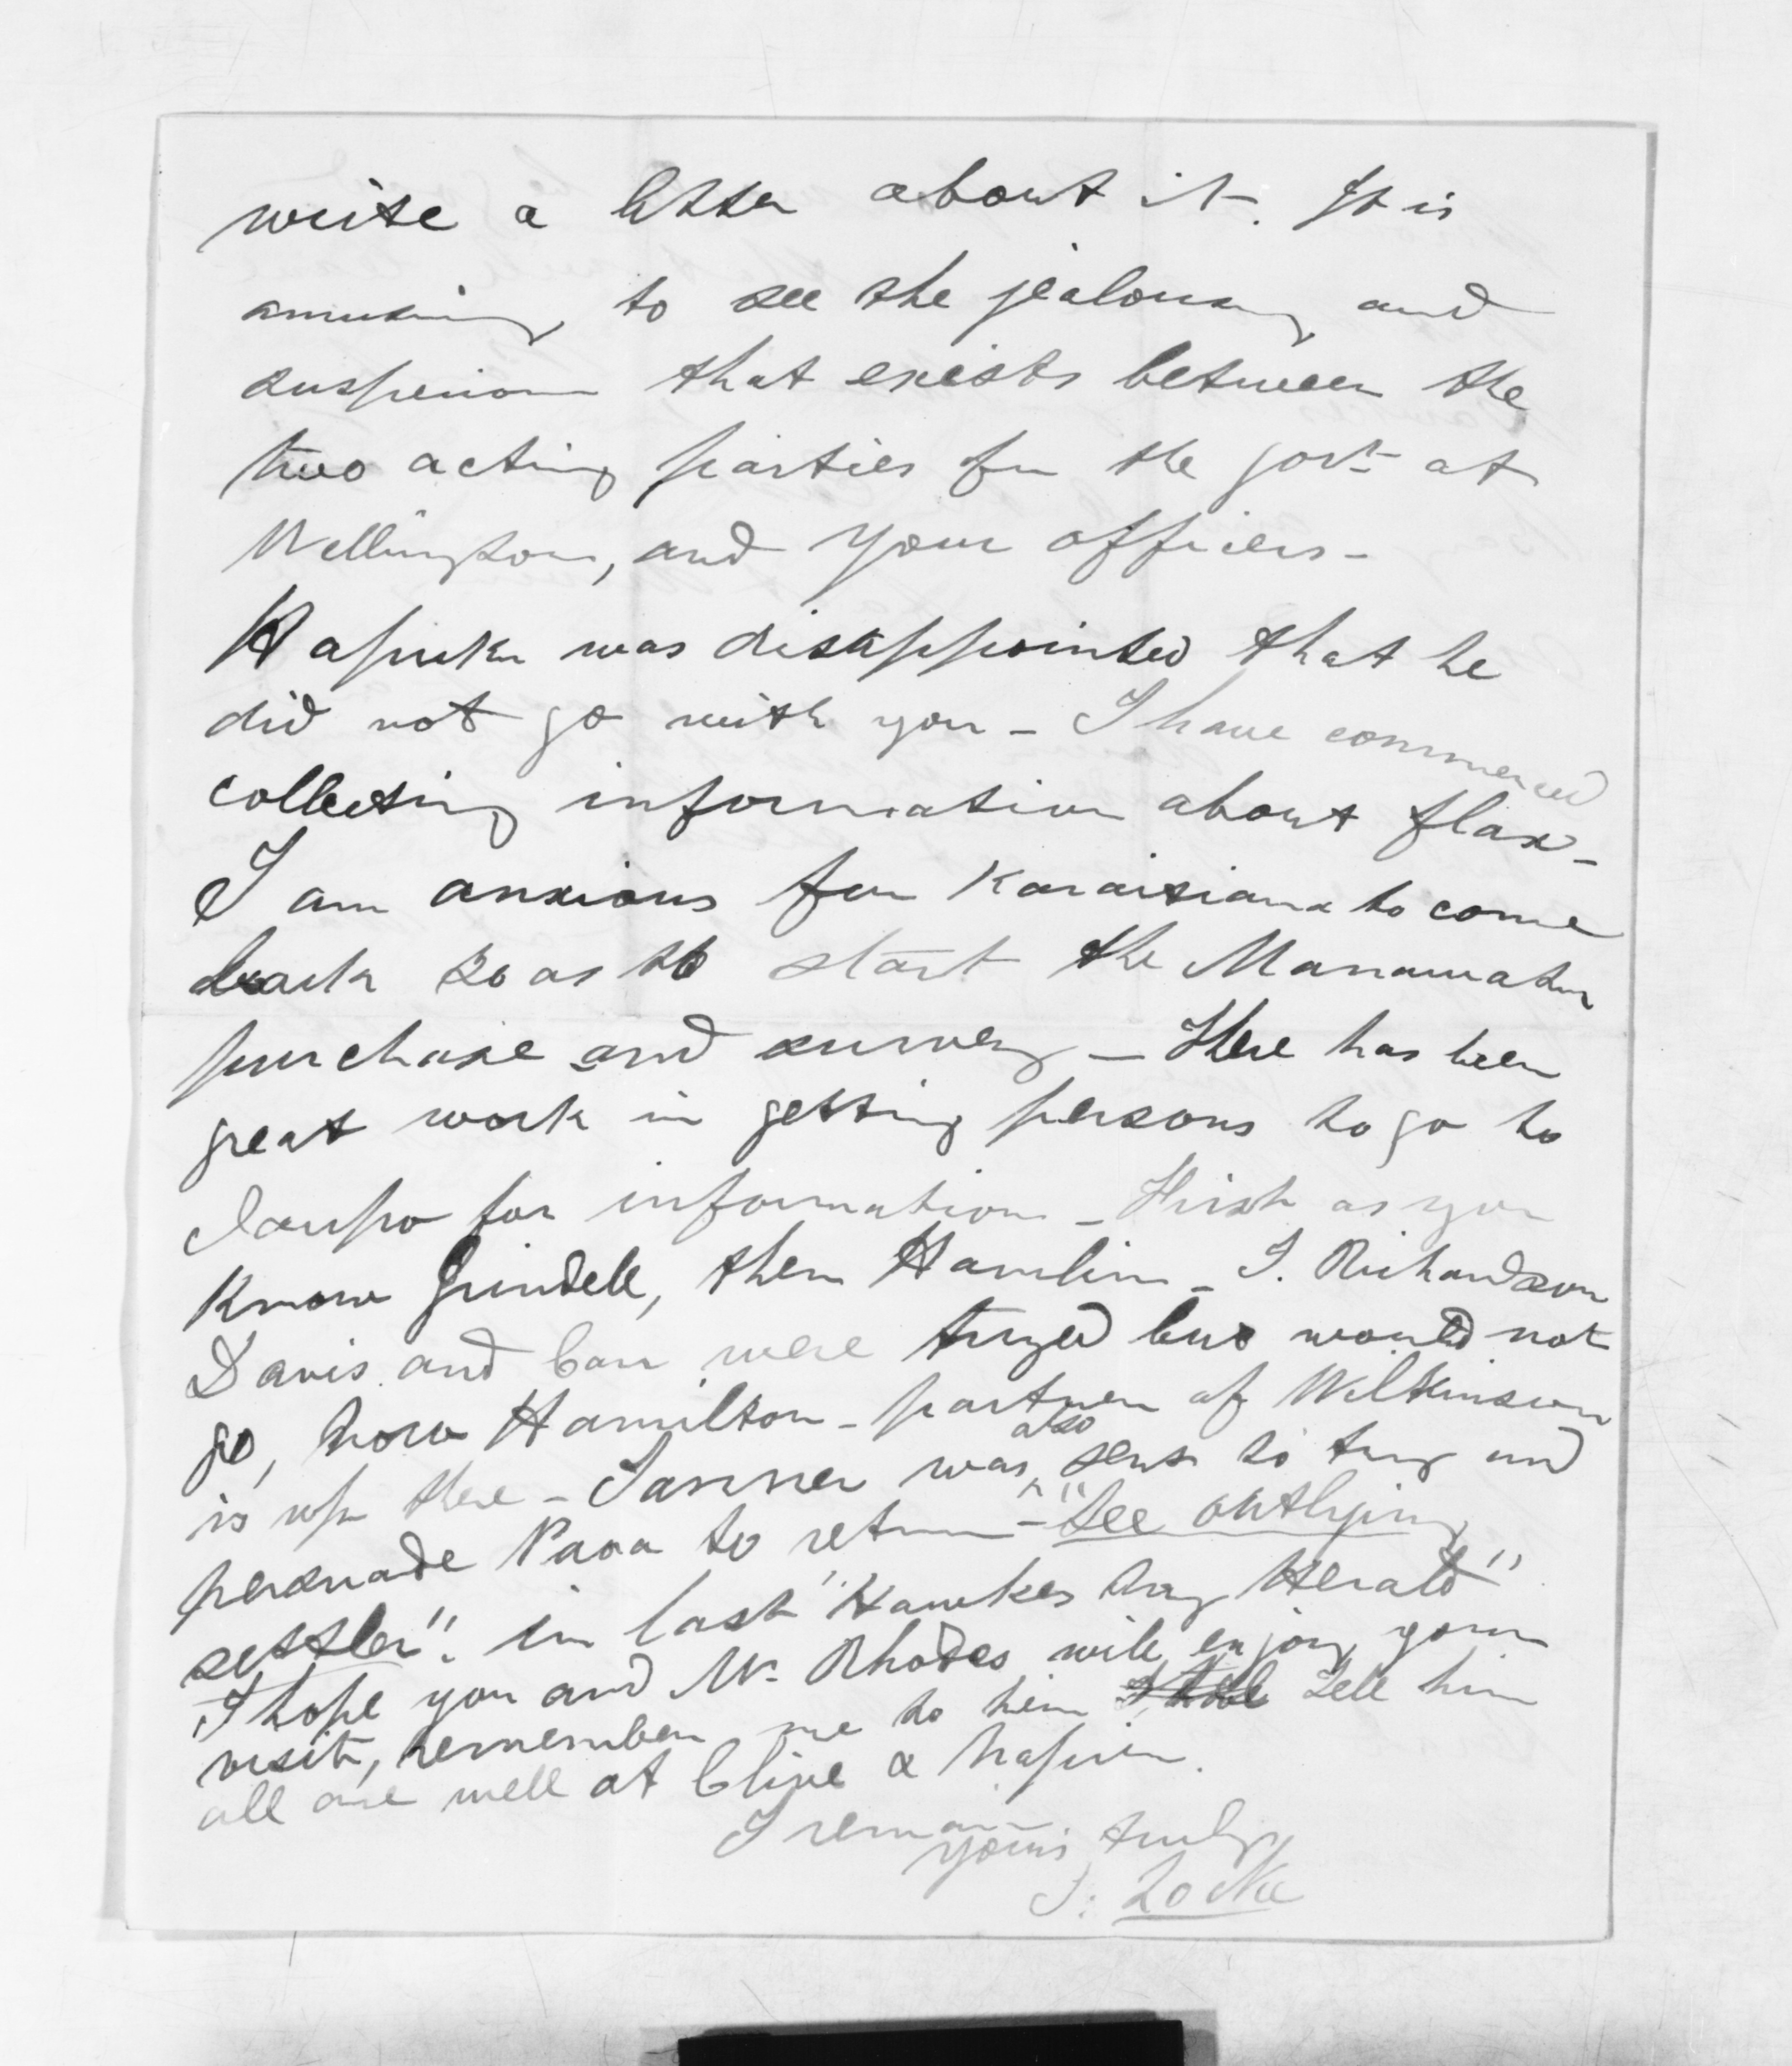 write a letter about it. It is
amusing to see the jealousy and
suspicion that exists between the
two acting parties for the govt at
Wellington, and your officers -
was disappointed that he
did not go with you - I have commenced
collecting information about flax -
I am anxious for Karaitiana to come
back so as to start the Manawatu
purchase and survey - There has been
great work in getting persons to go to
Taupo for information - First as you
know Grindell, then Hamlin - J. Richardson
Davis and Carr were tryed but would not
go, now Hamilton - partner of Wilkinson
is up there - Tanner was also sent to try and
persuade Paora to return - "See outlying
settler". in last "Hawkes Bay Herald"
I hope you and Mr. Rhodes will enjoy your
visit, remember me to him Tell him
all are well at Clive & Napier.
I remain
yours truly
S: Locke